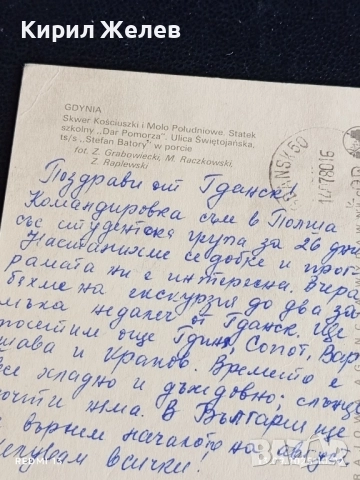 Кирил Желев
GDYNIA
Skwer Kościuszki i Molo Południowe. Statek
szkolny „Dar Pomorza". Ulica Świętojańska,
ts/s „Stefan Batory" w porcie
fot. Z. Grabowiecki, M. Raczkowski,
Z. Raplewski
GDAŃSK 50
Поздрави от Гданск!
Командировка съм в Полша
със студентска група за 26 дни
Настанихме се добре и прог-
рамата ни е интересна. Вчера
бяхме на екскурзия до два за-
мъка недалеч от Гданск. Ще
посетим още Гдиня, Сопот, Вар-
шава и Краков. Времето е
все хладно и дъждовно, слънце
почти няма. В България ще
се върнем началото на август
Целувам всички!
REDMI
BAZAR